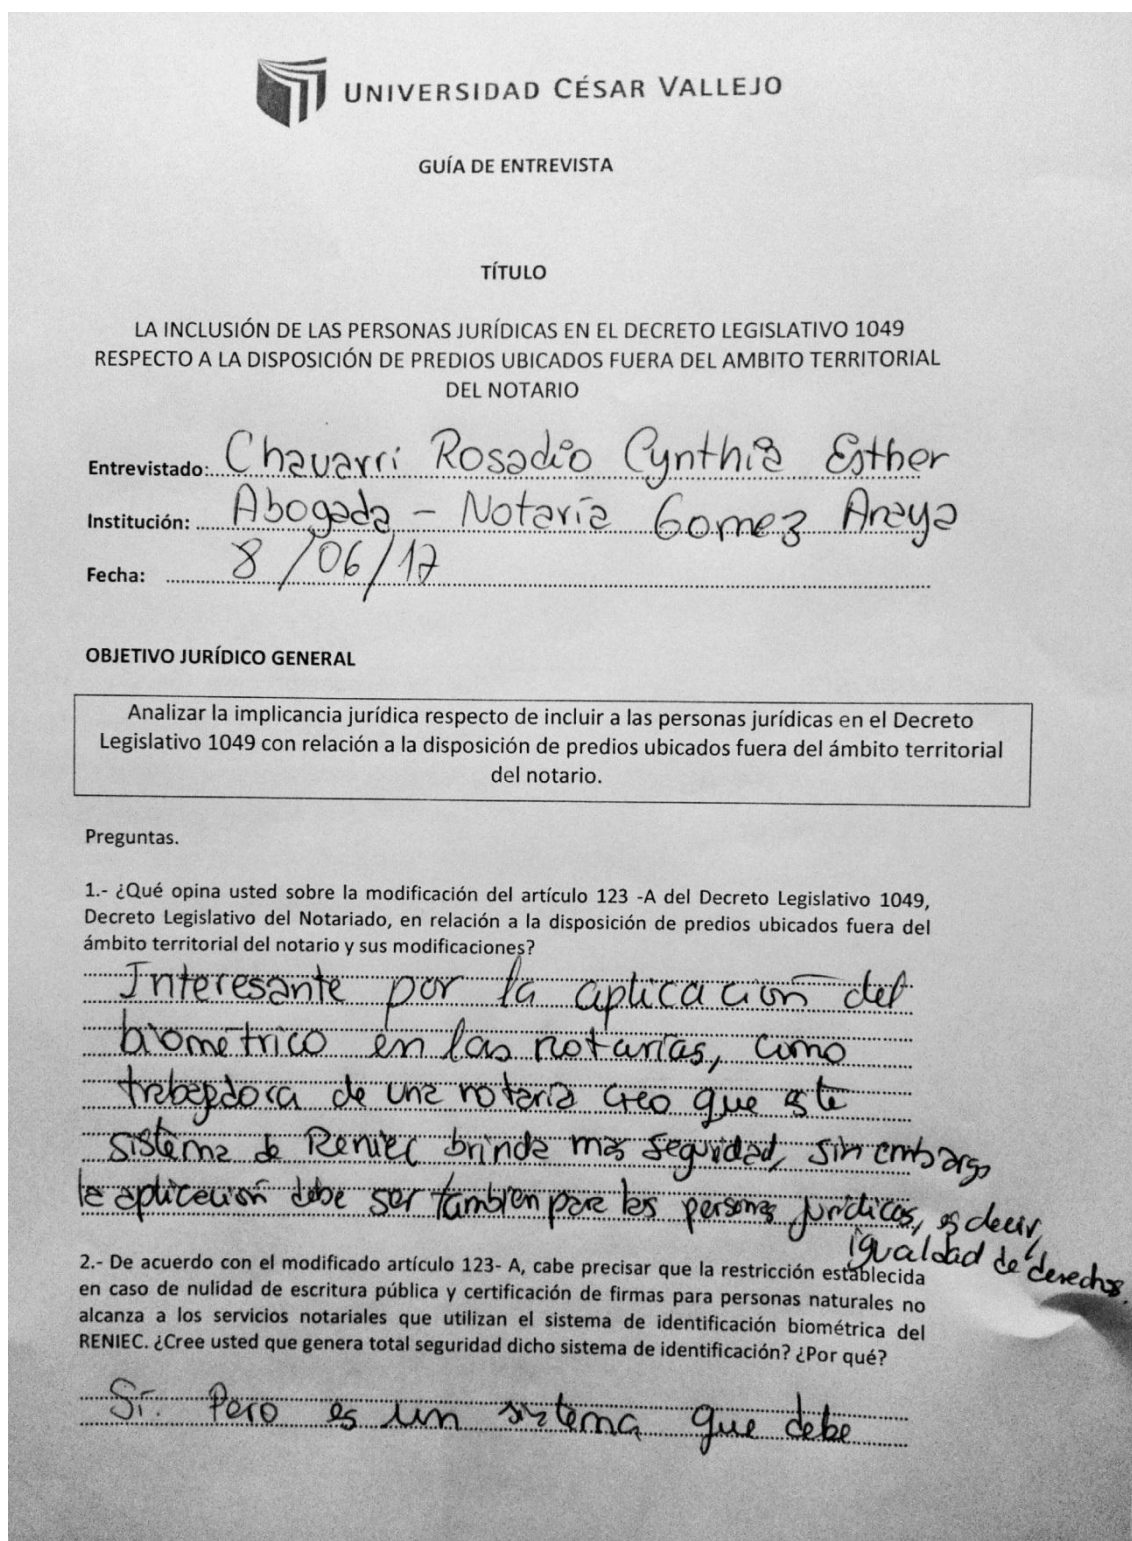 UNIVERSIDAD CÉSAR VALLEJO
GUÍA DE ENTREVISTA
TÍTULO
LA INCLUSIÓN DE LAS PERSONAS JURÍDICAS EN EL DECRETO LEGISLATIVO 1049
RESPECTO A LA DISPOSICIÓN DE PREDIOS UBICADOS FUERA DEL AMBITO TERRITORIAL
DEL NOTARIO
Entrevistado: Chavarri Rosadio Cynthia Esther
Institución: Abogada - Notaría Gomez Anaya
Fecha: 8/06/17
OBJETIVO JURÍDICO GENERAL
Analizar la implicancia jurídica respecto de incluir a las personas jurídicas en el Decreto
Legislativo 1049 con relación a la disposición de predios ubicados fuera del ámbito territorial
del notario.
Preguntas.
1.- ¿Qué opina usted sobre la modificación del artículo 123 -A del Decreto Legislativo 1049,
Decreto Legislativo del Notariado, en relación a la disposición de predios ubicados fuera del
ámbito territorial del notario y sus modificaciones?
Interesante por la aplicación del
biometrico en las notarías, como
trabajadora de una notaría creo que este
sistema de Reniec brinda mas seguridad, sin embargo
la aplicación debe ser tambien para las personas jurídicas, es decir,
igualdad de derechos.
2.- De acuerdo con el modificado artículo 123- A, cabe precisar que la restricción establecida
en caso de nulidad de escritura pública y certificación de firmas para personas naturales no
alcanza a los servicios notariales que utilizan el sistema de identificación biométrica del
RENIEC. ¿Cree usted que genera total seguridad dicho sistema de identificación? ¿Por qué?
Sí. Pero es un sistema que debe